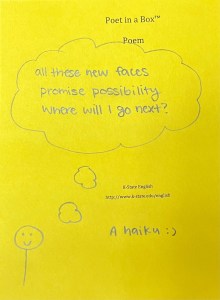 Poet in a Box™
Poem
all these new faces
promise possibility
where will I go next?
K-State English
http://www.k-state.edu/english
A haiku :)